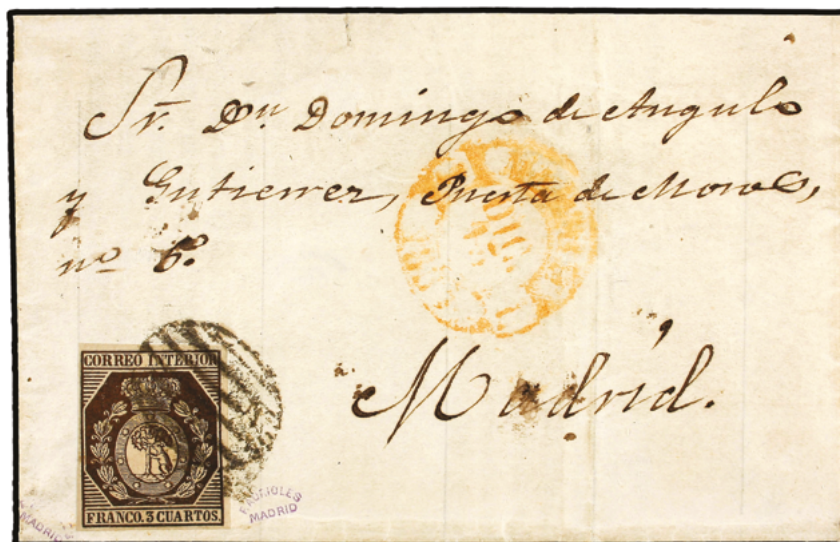 Sr. Dn Domingo de Angulo
y Gutierrez, Puerta de Moros,
nº 6º
Madrid.
DIC
CORREO INTERIOR
FRANCO. 3 CUARTOS.
MADRID
MADRID